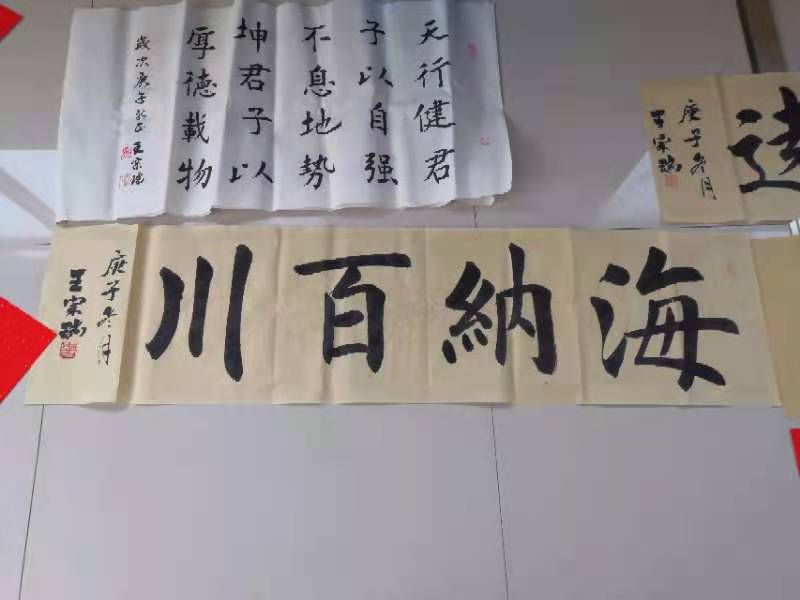 天行健君
子以自强
不息地势
坤君子以
厚德載物
歲次庚子
王宗瑞
海納百川
庚子冬月
王宗瑞
庚子冬月
王宗瑞